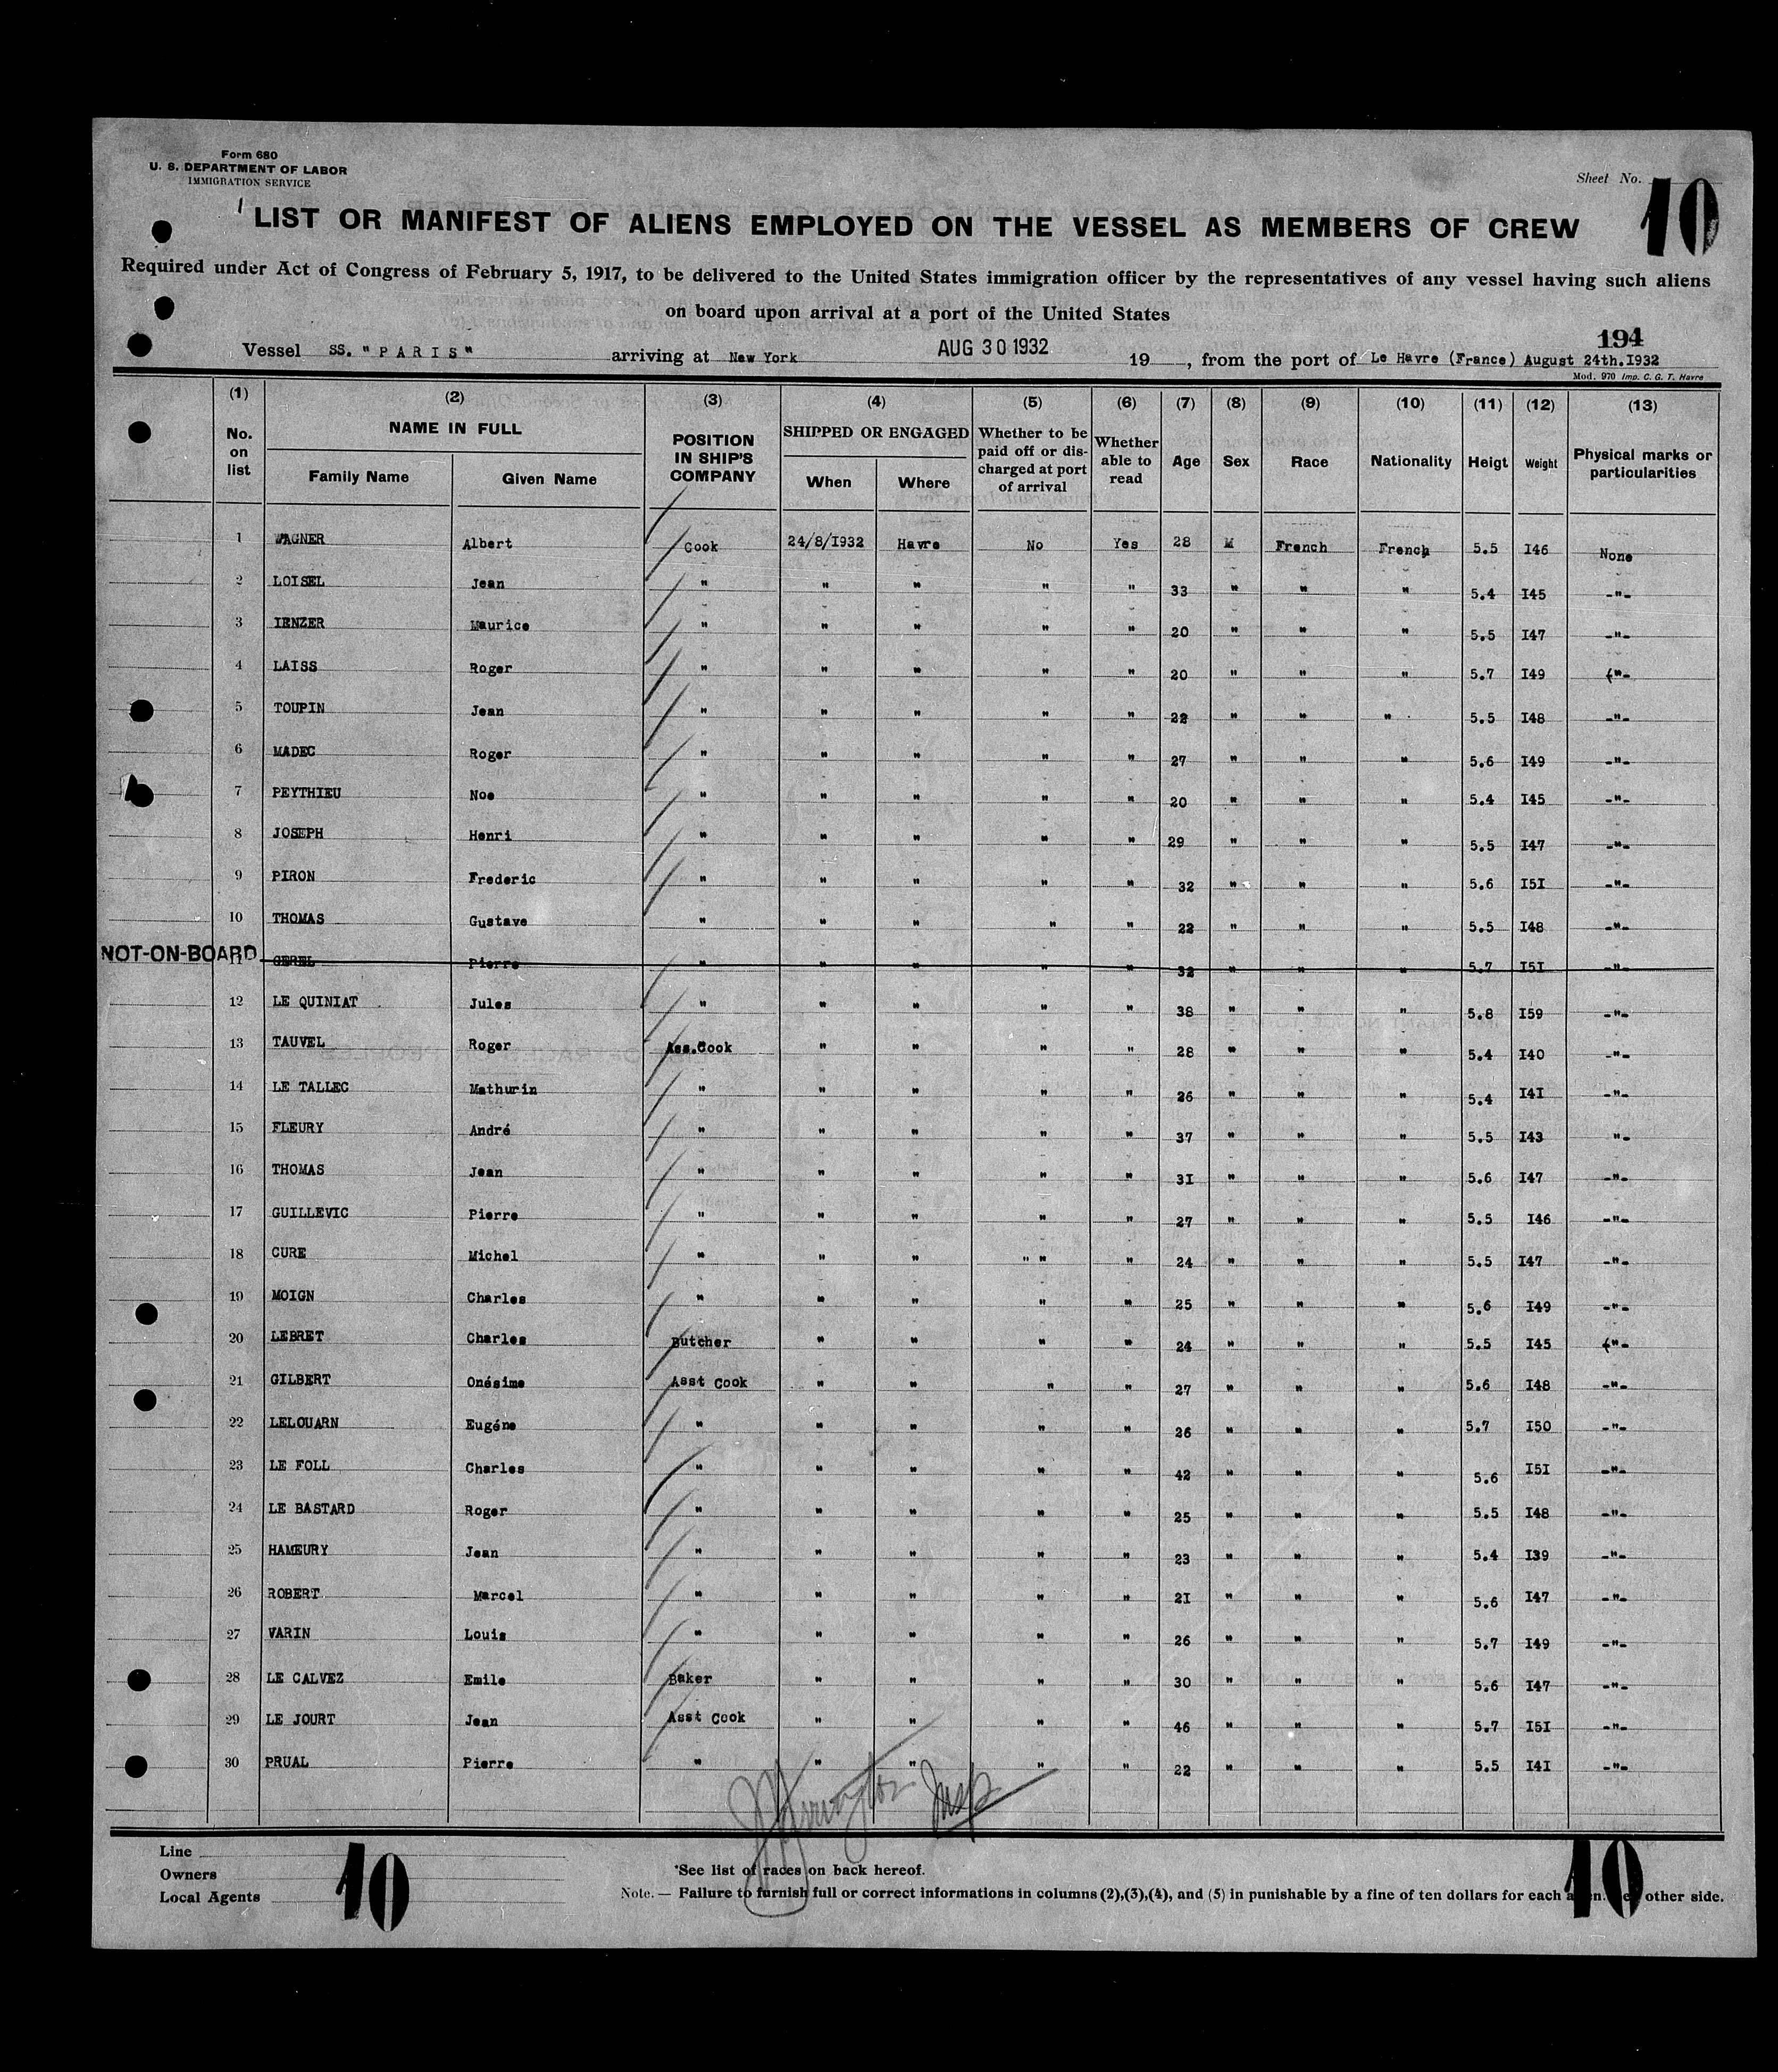 Form 680
U. S. DEPARTMENT OF LABOR
IMMIGRATION SERVICE
Sheet No. 10
LIST OR MANIFEST OF ALIENS EMPLOYED ON THE VESSEL AS MEMBERS OF CREW
Required under Act of Congress of February 5, 1917, to be delivered to the United States immigration officer by the representatives of any vessel having such aliens
on board upon arrival at a port of the United States
194
Vessel SS. "PARIS" arriving at New York AUG 30 1932 19 , from the port of Le Havre (France) August 24th.I932
Mod. 970 Imp. C. G. T. Havre
(1) (2) (3) (4) (5) (6) (7) (8) (9) (10) (11) (12) (13)
No. on list NAME IN FULL Family Name Given Name POSITION IN SHIP'S COMPANY SHIPPED OR ENGAGED When Where Whether to be paid off or discharged at port of arrival Whether able to read Age Sex Race Nationality Heigt Weight Physical marks or particularities
1 WAGNER Albert Cook 24/8/I932 Havre No Yes 28 M French French 5.5 I46 None
2 LOISEL Jean " " " " " 33 " " " 5.4 I45 -"-
3 IENZER Maurice " " " " " 20 " " " 5.5 I47 -"-
4 LAISS Roger " " " " " 20 " " " 5.7 I49 -"-
5 TOUPIN Jean " " " " " 22 " " " 5.5 I48 -"-
6 MADEC Roger " " " " " 27 " " " 5.6 I49 -"-
7 PEYTHIEU Noe " " " " " 20 " " " 5.4 I45 -"-
8 JOSEPH Henri " " " " " 29 " " " 5.5 I47 -"-
9 PIRON Frederic " " " " " 32 " " " 5.6 I5I -"-
10 THOMAS Gustave " " " " " 22 " " " 5.5 I48 -"-
NOT-ON-BOARD 11 GEREL Pierre " " " " " 32 " " " 5.7 I5I -"-
12 LE QUINIAT Jules " " " " " 38 " " " 5.8 I59 -"-
13 TAUVEL Roger Ass.Cook " " " " 28 " " " 5.4 I40 -"-
14 LE TALLEC Mathurin " " " " " 26 " " " 5.4 I4I -"-
15 FLEURY André " " " " " 37 " " " 5.5 I43 "-
16 THOMAS Jean " " " " " 3I " " " 5.6 I47 -"-
17 GUILLEVIC Pierre " " " " " 27 " " " 5.5 I46 -"-
18 CURE Michel " " " " " " 24 " " " 5.5 I47 -"-
19 MOIGN Charles " " " " " 25 " " " 5.6 I49 -"-
20 LEBRET Charles Butcher " " " " 24 " " " 5.5 I45 -"-
21 GILBERT Onésime Asst Cook " " " " 27 " " " 5.6 I48 -"-
22 LELOUARN Eugéne " " " " " 26 " " " 5.7 I50 -"-
23 LE FOLL Charles " " " " " 42 " " " 5.6 I5I -"-
24 LE BASTARD Roger " " " " " 25 " " " 5.5 I48 -"-
25 HAMEURY Jean " " " " " 23 " " " 5.4 I39 -"-
26 ROBERT Marcel " " " " " 2I " " " 5.6 I47 -"-
27 VARIN Louis " " " " " 26 " " " 5.7 I49 -"-
28 LE CALVEZ Emile Baker " " " " 30 " " " 5.6 I47 -"-
29 LE JOURT Jean Asst Cook " " " " 46 " " " 5.7 I5I -"-
30 PRUAL Pierre " " " " " 22 " " " 5.5 I4I -"-
Insp
Line
Owners
Local Agents
10
*See list of races on back hereof.
Note. — Failure to furnish full or correct informations in columns (2),(3),(4), and (5) in punishable by a fine of ten dollars for each other side.
10